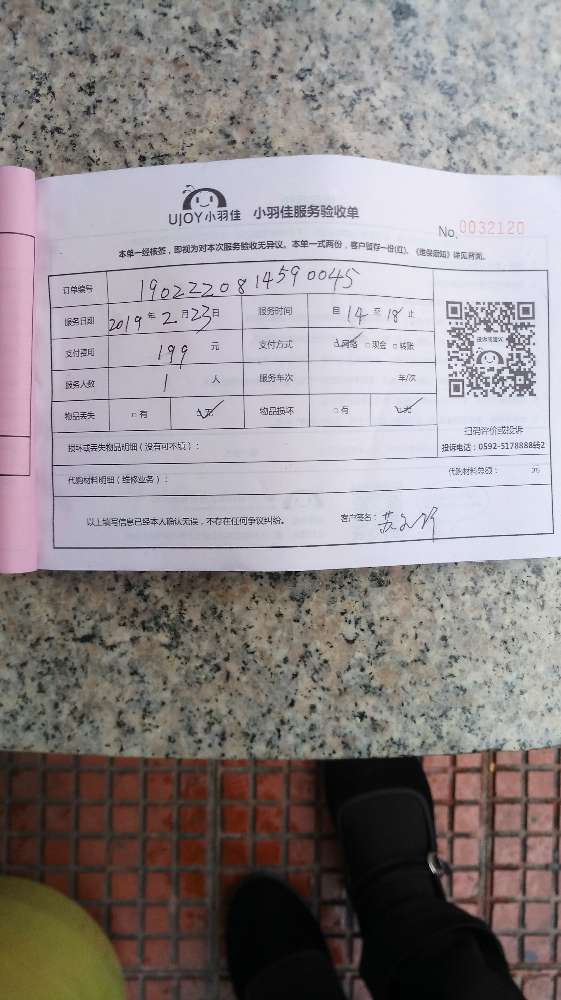 UJOY小羽佳 小羽佳服务验收单
No.0032120
本单一经核签，即视为对本次服务验收无异议。本单一式两份，客户留存一份(红)。《维保须知》详见背面。
订单编号 190222081459 0045
服务日期 2019年2月23日 服务时间 自14至18止
支付费用 199元 支付方式 ☑网络 □现金 □转账
服务人数 1人 服务车次 车/次
物品丢失 □有 ☑无 物品损坏 □有 ☑无
扫码评价或投诉
投诉电话：0592-5178888转2
损坏或丢失物品明细（没有可不填）：
代购材料明细（维修业务）： 代购材料总额： 元
以上填写信息已经本人确认无误，不存在任何争议纠纷。 客户签名：苏